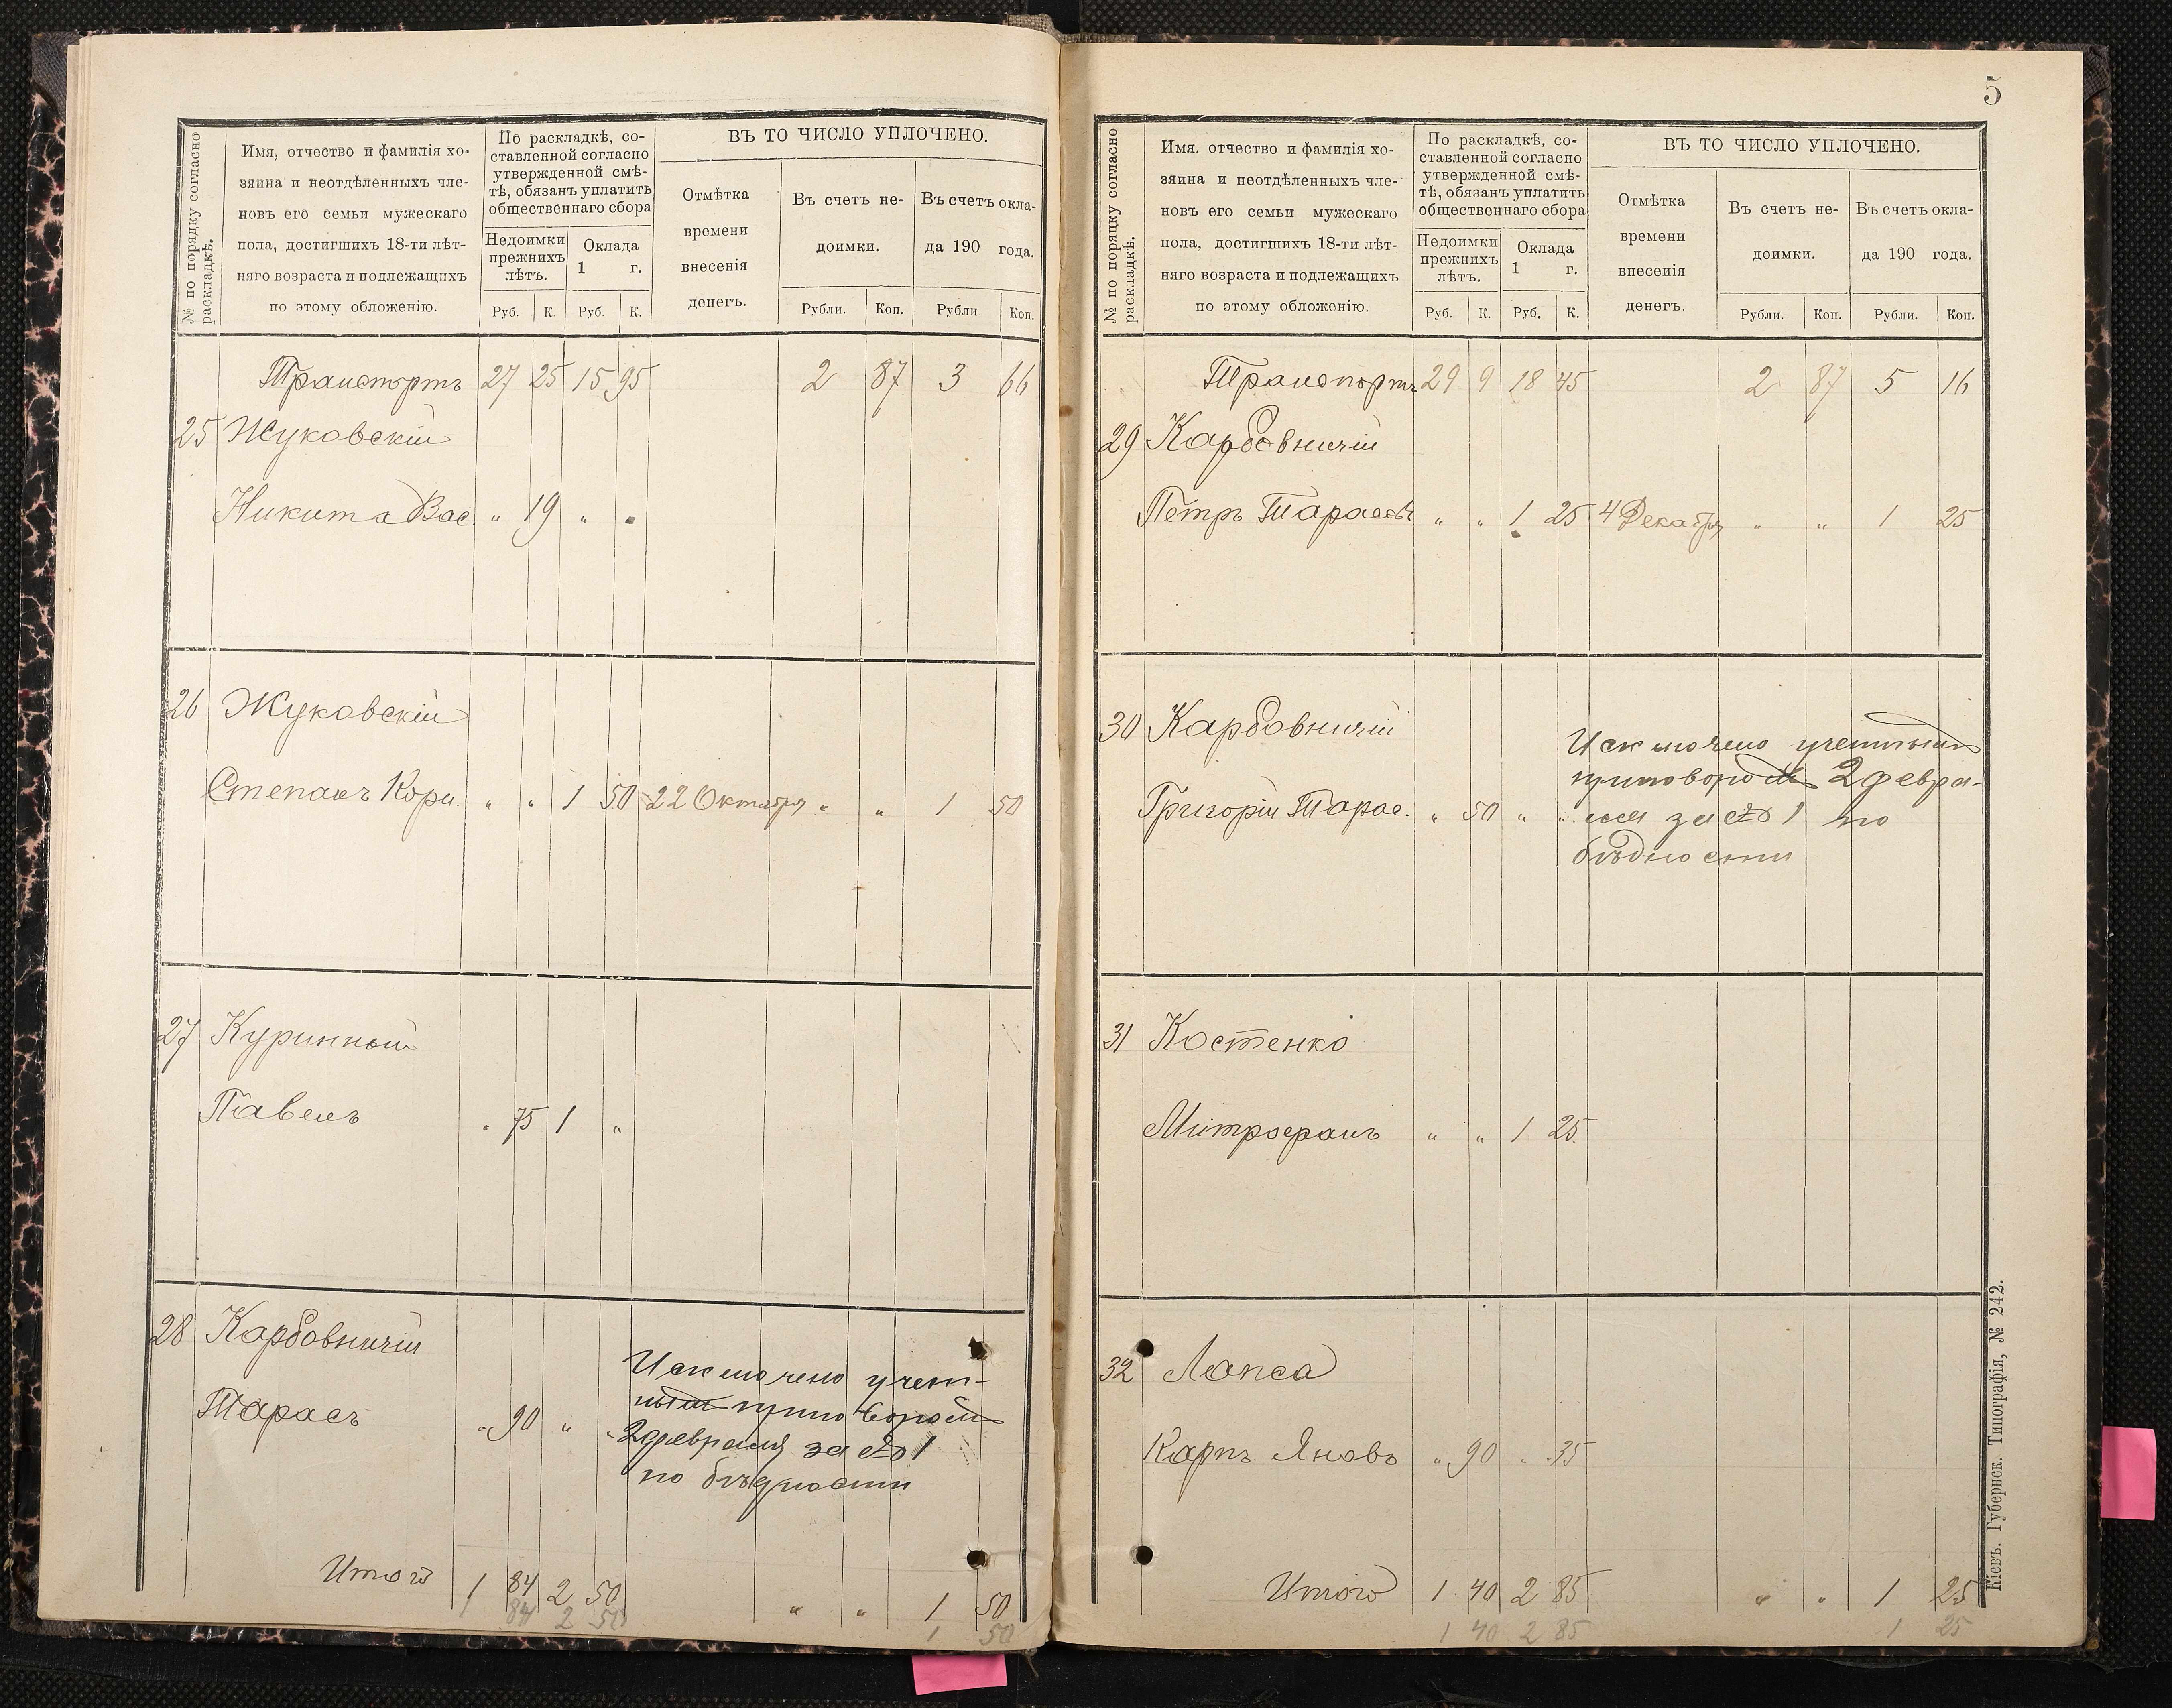 № по порядку согласно
раскладкѣ.
Имя, отчество и фамилія хо-
зяина и неотдѣленныхъ чле-
новъ его семьи мужескаго
пола, достигшихъ 18-ти лѣт-
няго возраста и подлежащихъ
по этому обложенію.
По раскладкѣ, со-
ставленной согласно
утвержденной смѣ-
тѣ, обязанъ уплатить
общественнаго сбора
Недоимки
прежнихъ
лѣтъ.
Оклада
1 г.
Руб. К. Руб. К.
ВЪ ТО ЧИСЛО УПЛОЧЕНО.
Отмѣтка
времени
внесенія
денегъ.
Въ счетъ не-
доимки.
Въ счетъ окла-
да 190 года.
Рубли. Коп. Рубли Коп.
Транспортъ 27 25 15 95 2 87 3 66
25 Жуковскій
Никита Вас. " 19 " "
26 Жуковскій
Степанъ Корн. " " 1 50 22 Октября " " 1 50
27 Куринный
Павелъ " 75 1 "
28 Карбовничій
Тарасъ " 90 " "
Исключено учет-
нымъ приговоромъ
2 февраля за № 1
по бѣдности
Итого 1 84 2 50 " " 1 50
1 84 2 50 1 50
5
№ по порядку согласно
раскладкѣ.
Имя. отчество и фамилія хо-
зяина и неотдѣленныхъ чле-
новъ его семьи мужескаго
пола, достигшихъ 18-ти лѣт-
няго возраста и подлежащихъ
по этому обложенію.
По раскладкѣ, со-
ставленной согласно
утвержденной смѣ-
тѣ, обязанъ уплатить
общественнаго сбора
Недоимки
прежнихъ
лѣтъ.
Оклада
1 г.
Руб. К. Руб. К.
ВЪ ТО ЧИСЛО УПЛОЧЕНО.
Отмѣтка
времени
внесенія
денегъ.
Въ счетъ не-
доимки.
Въ счетъ окла-
да 190 года.
Рубли. Коп. Рубли. Коп.
Транспортъ 29 9 18 45 2 87 5 16
29 Карбовничій
Петръ Тарасовъ " " 1 25 4 Декабря " " 1 25
30 Карбовничій
Григорій Тарас. " 50 " "
Исключено учетнымъ
приговоромъ 2 февра-
ля за № 1 по
бѣдности
31 Костенко
Митрофанъ " " 1 25
32 Лапса
Карпъ Яновъ " 90 " 35
Итого 1 40 2 85 " " 1 25
1 40 2 85 1 25
Кіевъ. Губернск. Типографія, № 242.